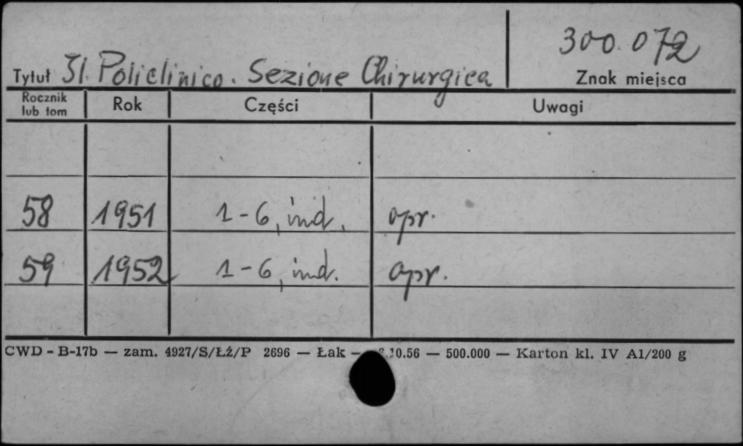 300.072
Tytuł Il Policlinico. Sezione Chirurgica Znak miejsca
Rocznik lub tom Rok Części Uwagi
58 1951 1-6, ind. opr.
59 1952 1-6, ind. opr.
CWD - B-17b — zam. 4927/S/ŁŻ/P 2696 — Łak — .10.56 — 500.000 — Karton kl. IV A1/200 g